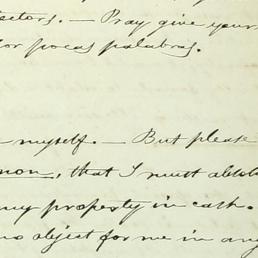 ectors. — Pray give your
or pocas palabras.
myself. — But please
mon, that I must absta
my property in cash.
no object for me in any